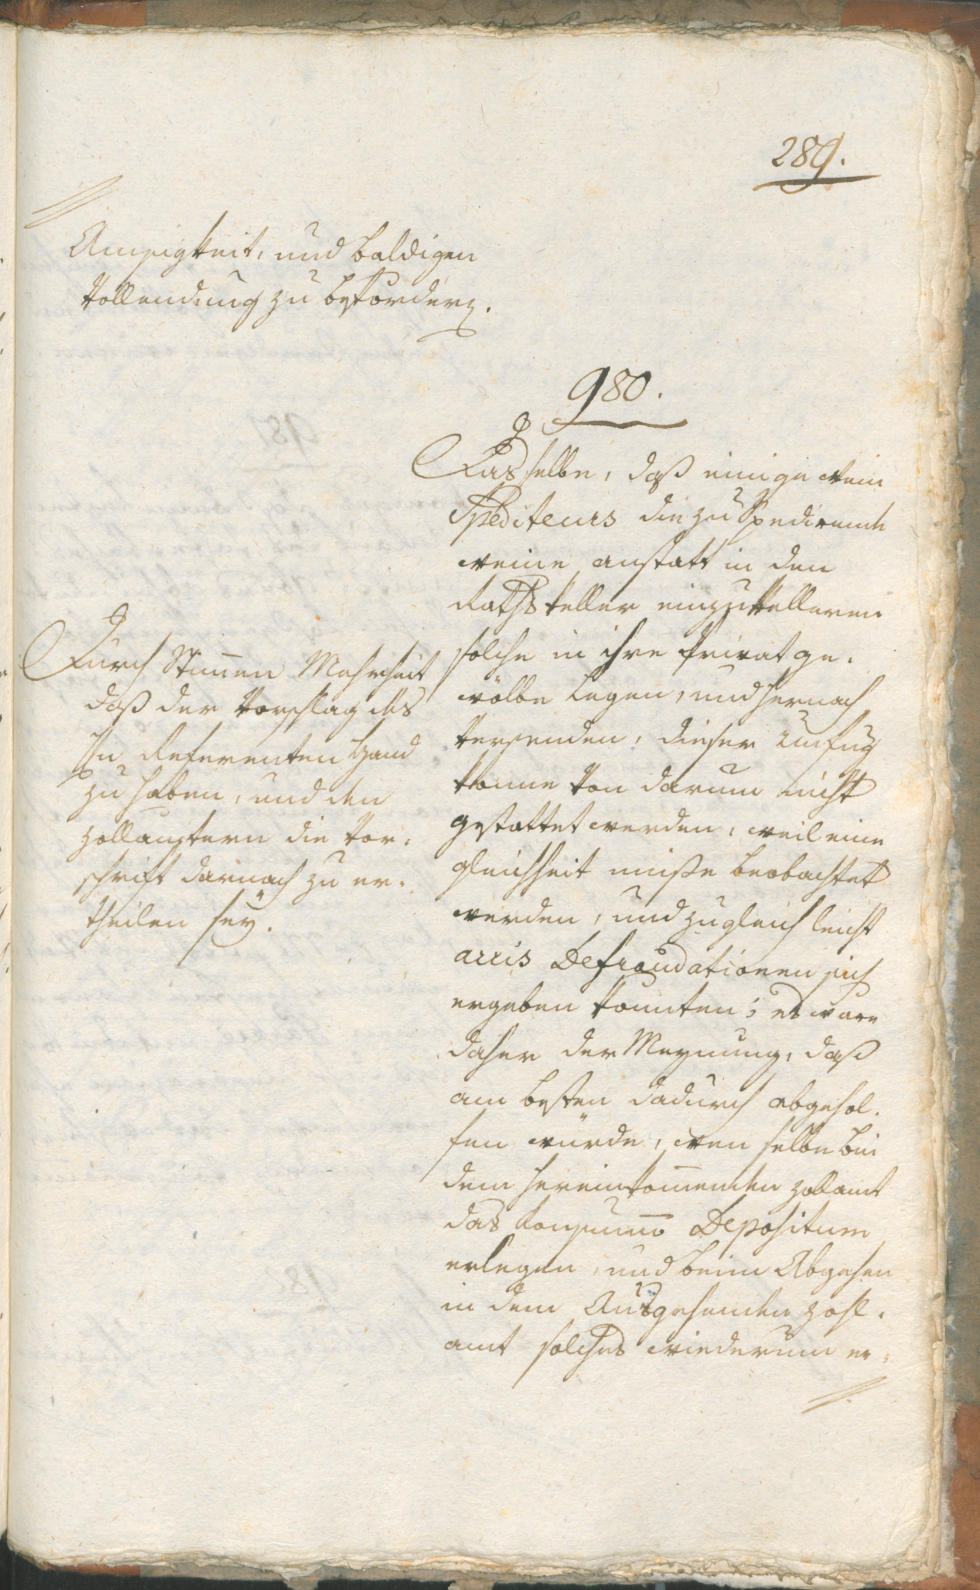 289.
und baldigen
Vollendung zu befördern.
980.
Das selbe, daß einige Wein
Spediteurs die zu Spedirende
Weine anstatt in den
Rathskeller einzukelleren
solche in ihre Privat ge-
wölbe Legen, und hernach
versenden, dieser Unfug
könne von darum nicht
gestattet werden, weil eine
gleichheit müße beobachtet
werden, und zugleich leicht
accis Defraudationen sich
ergeben könnten; es wäre
daher der Meynung, daß
am besten dadurch abgehol-
fen würde, wen selbe bei
dem hereinkom̄enden zollamt
das Konsumo Depositum
erlegen, und beim Abgehen
in dem Ausgehenden zoll-
amt solches wiederum er-
Durch Stim̄en Mehrheit
daß der Vorschlag des
Hn Referenten Hand
zu haben, und den
zollämtern die Vor-
schrift darnach zu er-
theilen seÿ.